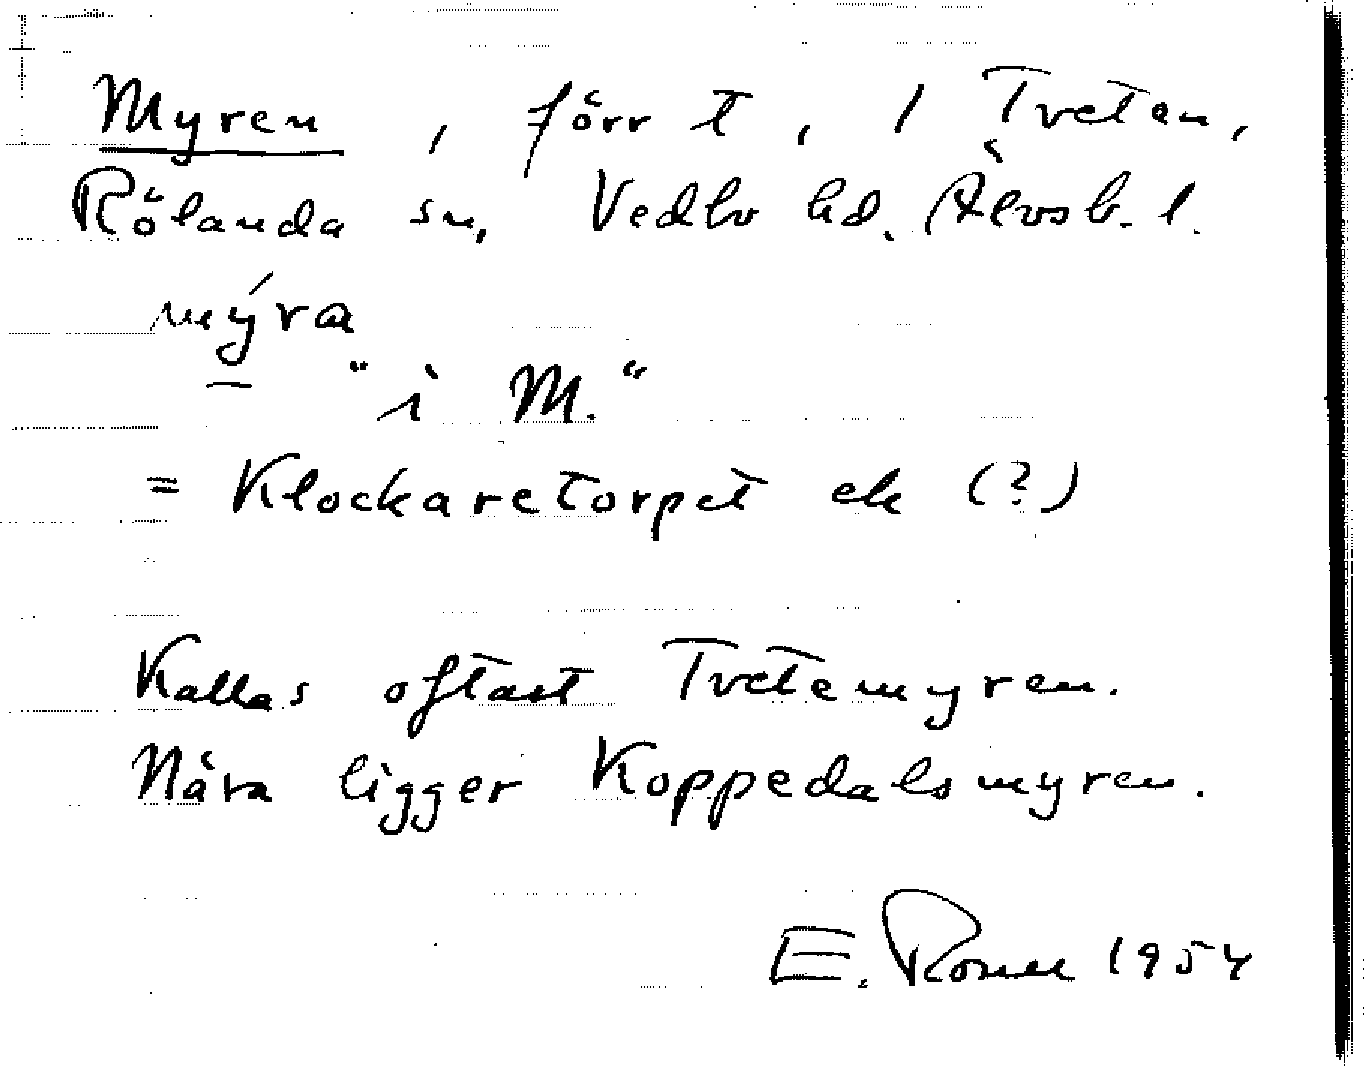 Myren, förr t, 1 Tveten,
Rölanda sn, Vedbo hd. Älvsb. l.
mýra
"i M."
= Klockaretorpet ek (?)
Kallas oftast Tvetemyren.
Nära ligger Koppedalsmyren.
E. Rosell 1954